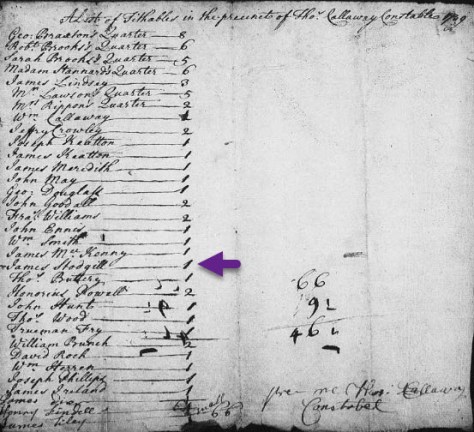 A List of Tithables in the precinct of Thos. Callaway Constable 1749
Geo: Braxton's Quarter 8
Robt Brooks's Quarter 6
Sarah Brooks's Quarter 5
Madam Stannard's Quarter 6
James Lindsey 3
Mr Lawson's Quarter 5
Mrs Rippon's Quarter 2
Wm Callaway 1
Jeffry Crowley 2
Joseph Keatton 1
James Keatton 1
James Meredith 1
John May 1
Geo: Douglass 1
John Goodall 2
Fras Williams 2
John Ennes 1
Wm Smith 1
James Mc Kenny 1
James Stodgill 1
Thos Buttery 1
Honorius Powell 2
John Hunt 1
Thos Wood 1
Trueman Fry 1
William Brunch 2
David Rock 1
Wm Herren 1
Joseph Phillips 1
James Ireland 1
James
Henry
James
66
92
462
pr me Thos. Callaway
Constobel